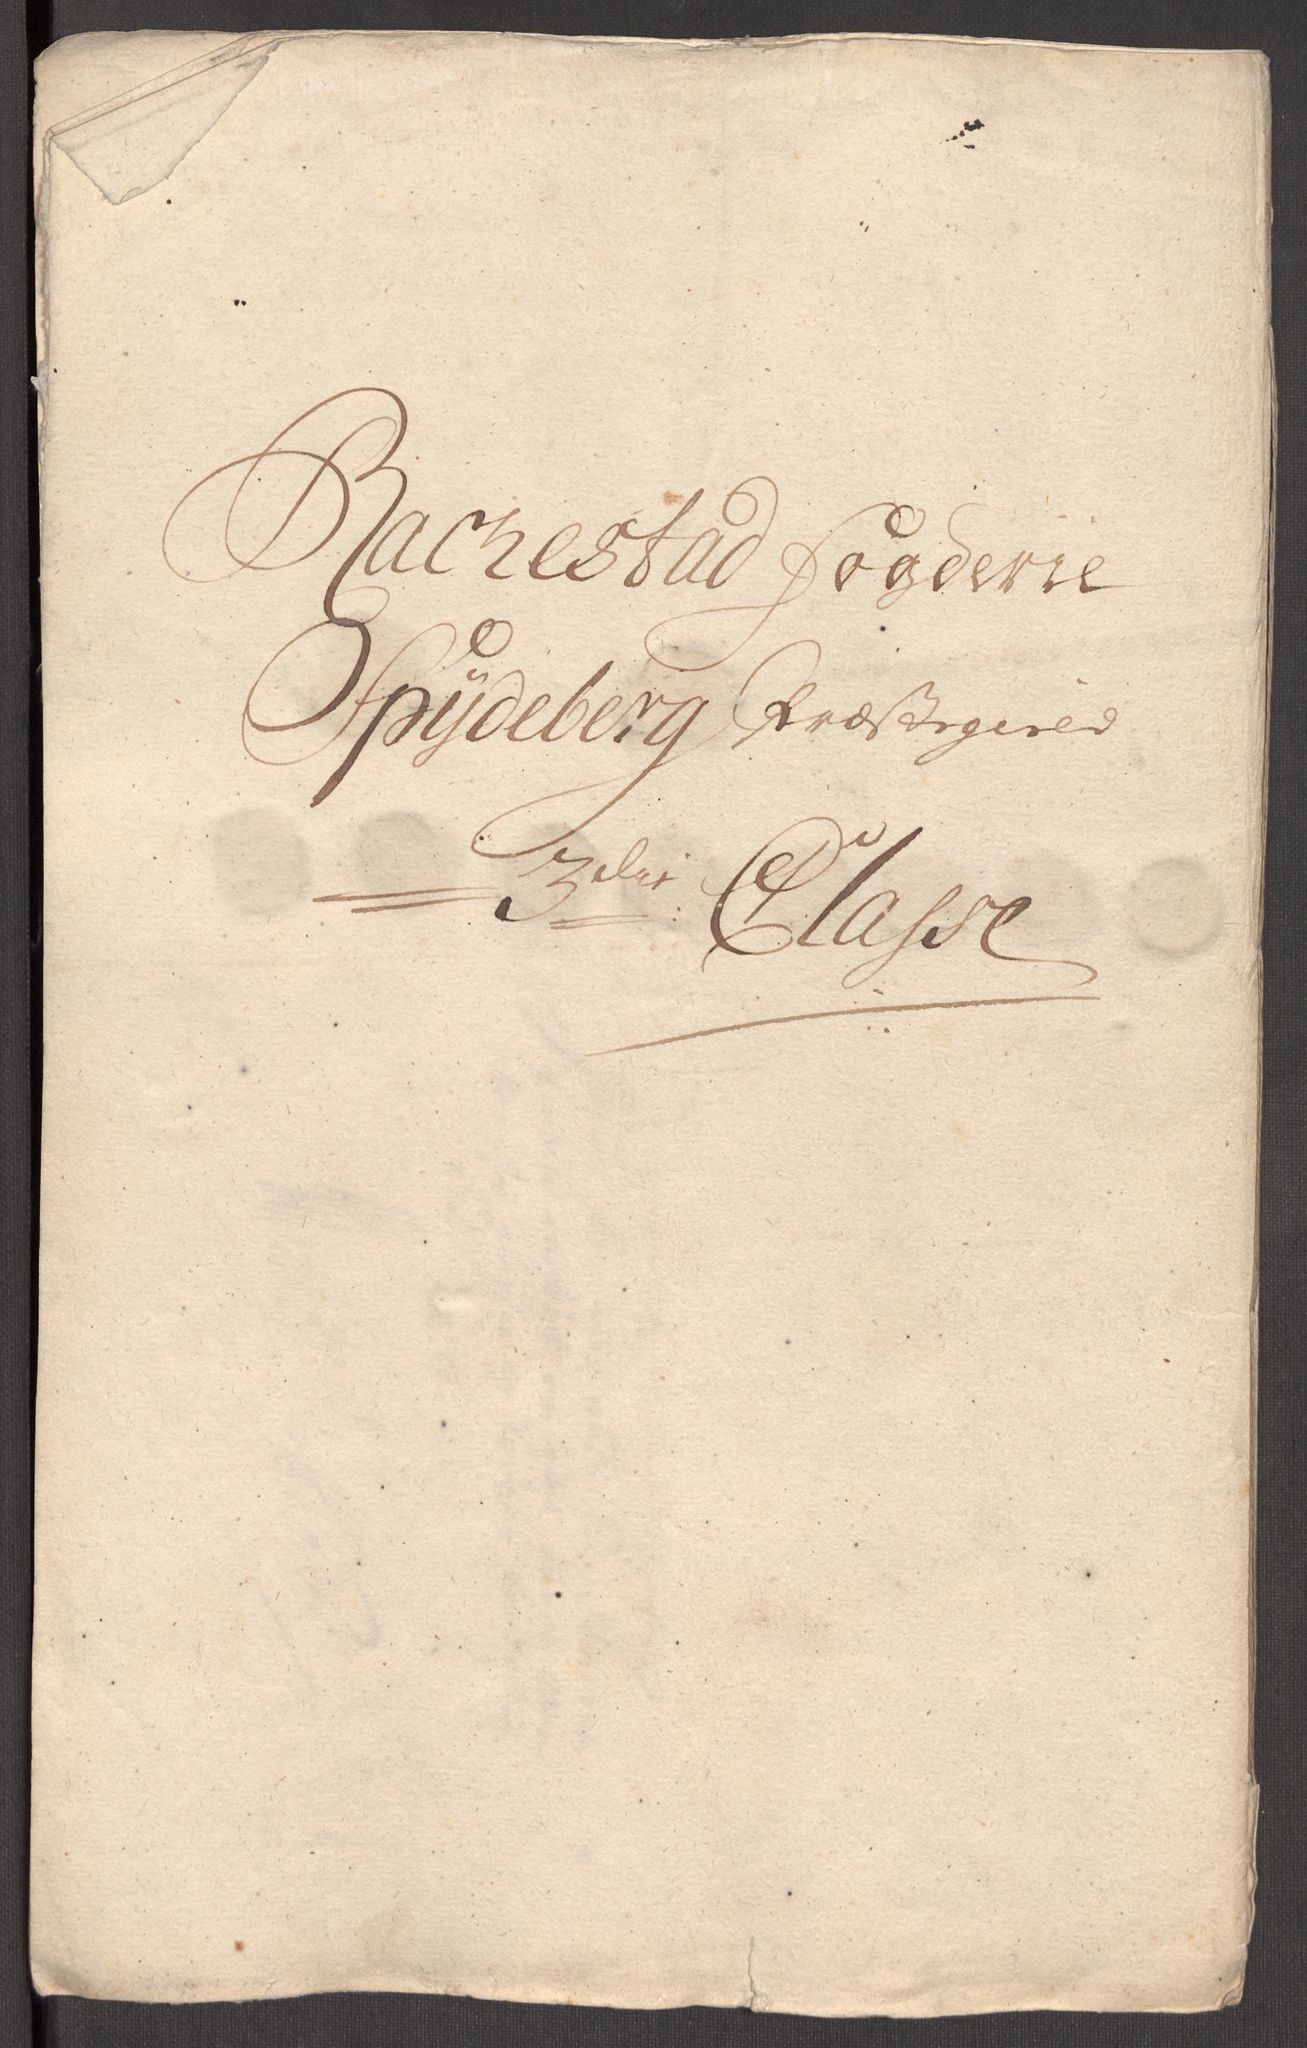 Rachestad fögderie
Spÿdeberg Præstegield
3der Classe